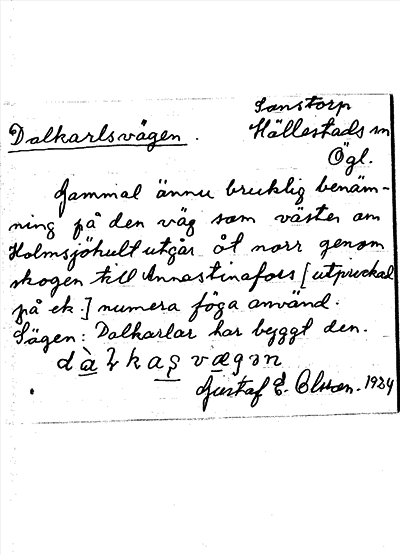 Sanstorp
Dalkarlsvägen. Hällestads sn
Ögl.
Gammal ännu bruklig benäm-
ning på den väg som väster om
Holmsjöhult utgår åt norr genom
skogen till Annastinafors [utprickad
på ek.] numera föga använd.
Sägen: Dalkarlar har byggt den.
dàɫkaş vægən
Gustaf E. Olsson. 1934